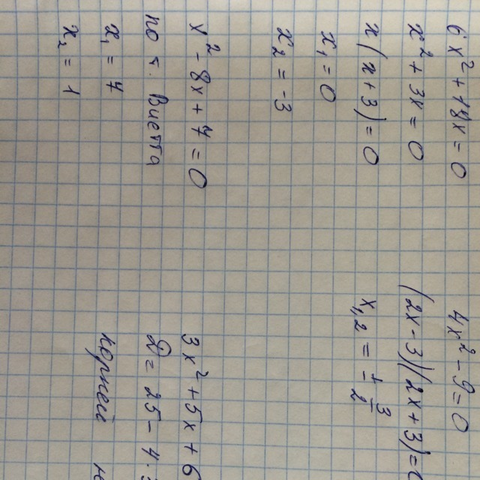 6x² + 18x = 0
x² + 3x = 0
x(x+3) = 0
x₁ = 0
x₂ = -3
x² - 8x + 7 = 0
по т. Виетта
x₁ = 7
x₂ = 1
4x² - 9 = 0
(2x-3)(2x+3)=0
x₁,₂ = ± 3/2
3x² + 5x + 6
D = 25 - 4 ·
корней